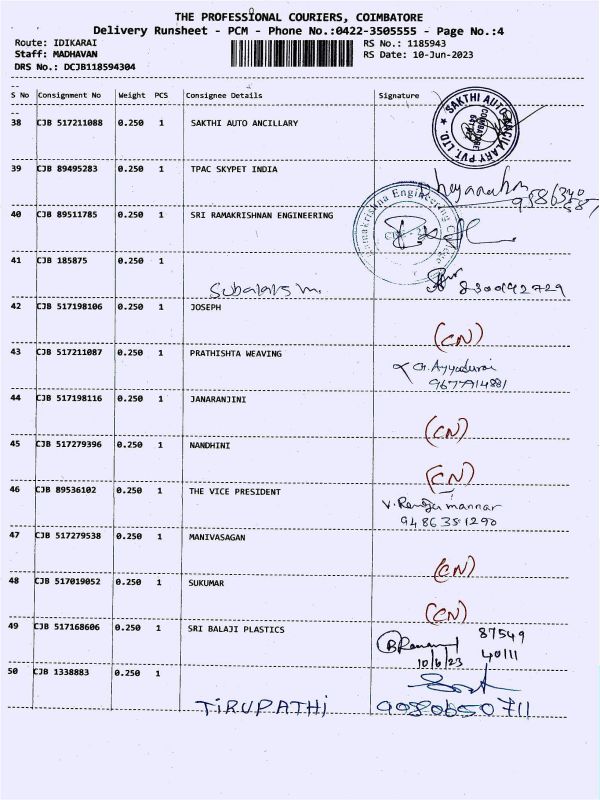 THE PROFESSIONAL COURIERS, COIMBATORE
Delivery Runsheet - PCM - Phone No.:0422-3505555 - Page No.:4
Route: IDIKARAI RS No.: 1185943
Staff: MADHAVAN RS Date: 10-Jun-2023
DRS No.: DCJB118594304
S No Consignment No Weight PCS Consignee Details Signature
38 CJB 517211088 0.250 1 SAKTHI AUTO ANCILLARY
SAKTHI AUTO ANCILLARY PVT. LTD.
COIMBATORE
39 CJB 89495283 0.250 1 TPAC SKYPET INDIA
40 CJB 89511785 0.250 1 SRI RAMAKRISHNAN ENGINEERING
Ramakrishna Engineering College
41 CJB 185875 0.250 1
42 CJB 517198106 0.250 1 JOSEPH
(CN)
43 CJB 517211087 0.250 1 PRATHISHTA WEAVING
G. Ayyadurai
9677914881
44 CJB 517198116 0.250 1 JANARANJINI
(CN)
45 CJB 517279396 0.250 1 NANDHINI
(CN)
46 CJB 89536102 0.250 1 THE VICE PRESIDENT
9486351290
47 CJB 517279538 0.250 1 MANIVASAGAN
(CN)
48 CJB 517019052 0.250 1 SUKUMAR
(CN)
49 CJB 517168606 0.250 1 SRI BALAJI PLASTICS
87549
10/6/23 40111
50 CJB 1338883 0.250 1
TIRUPATHI 9080650711